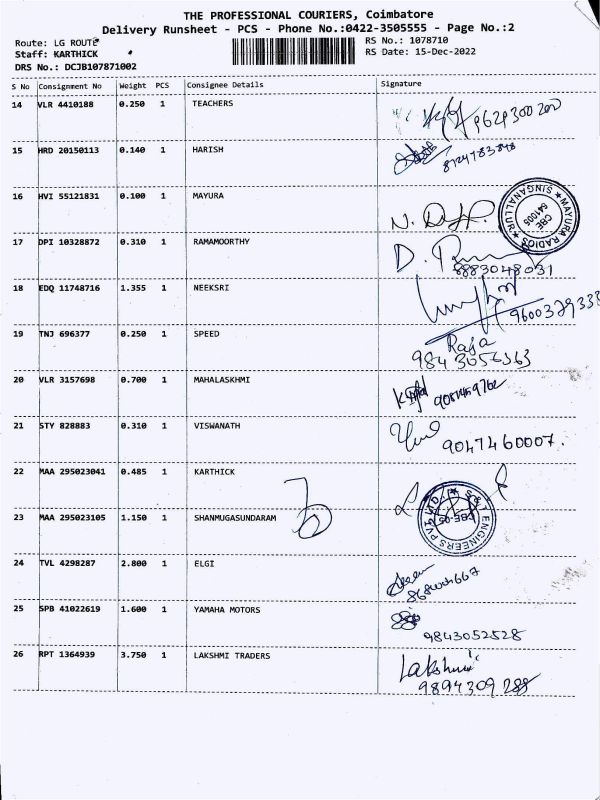 THE PROFESSIONAL COURIERS, Coimbatore
Delivery Runsheet - PCS - Phone No.:0422-3505555 - Page No.:2
Route: LG ROUTE
RS No.: 1078710
Staff: KARTHICK
RS Date: 15-Dec-2022
DRS No.: DCJB107871002
S No Consignment No Weight PCS Consignee Details Signature
14 VLR 4410188 0.250 1 TEACHERS
9629300200
15 HRD 20150113 0.140 1 HARISH
16 HVI 55121831 0.100 1 MAYURA
MAYURA RADIOS ★ SINGANALLUR ★
CBE
641005
17 DPI 10328872 0.310 1 RAMAMOORTHY
8883048031
18 EDQ 11748716 1.355 1 NEEKSRI
19 TNJ 696377 0.250 1 SPEED
Raja
9843056363
20 VLR 3157698 0.700 1 MAHALASKHMI
21 STY 828883 0.310 1 VISWANATH
9047460007.
22 MAA 295023041 0.485 1 KARTHICK
23 MAA 295023105 1.150 1 SHANMUGASUNDARAM
ENGINEERS PVT LTD.
CBE-05
24 TVL 4298287 2.800 1 ELGI
25 SPB 41022619 1.600 1 YAMAHA MOTORS
9843052528
26 RPT 1364939 3.750 1 LAKSHMI TRADERS
Lakshmi
9894309288